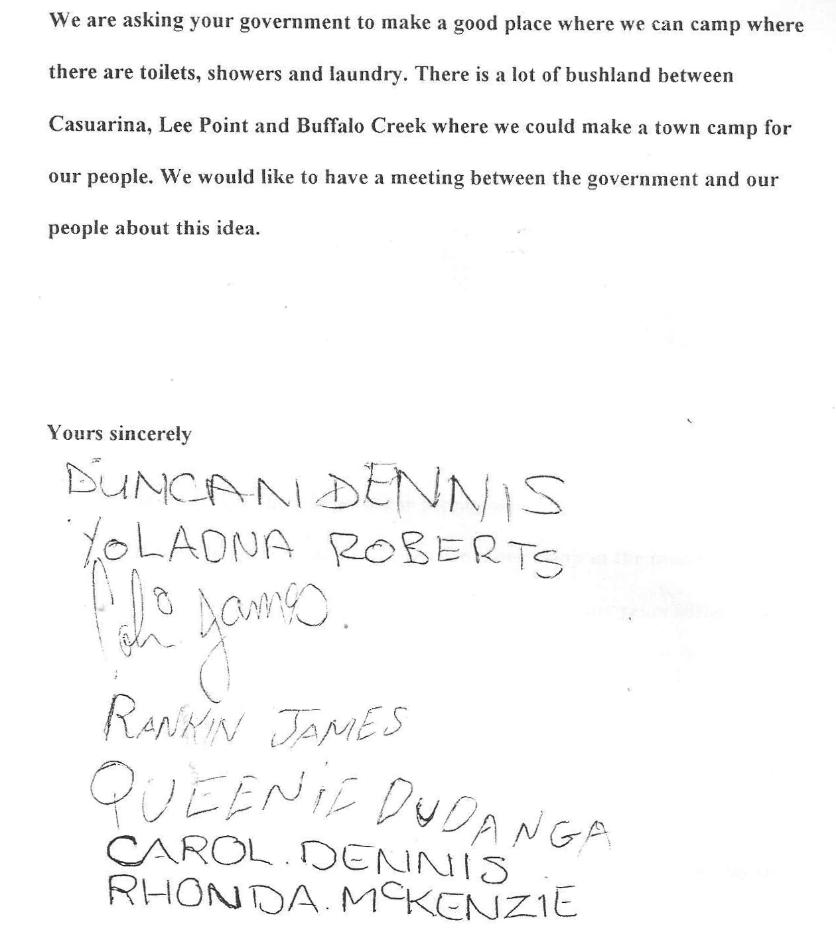 We are asking your government to make a good place where we can camp where
there are toilets, showers and laundry. There is a lot of bushland between
Casuarina, Lee Point and Buffalo Creek where we could make a town camp for
our people. We would like to have a meeting between the government and our
people about this idea.
Yours sincerely
DUNCAN DENNIS
YOLADNA ROBERTS
James
RANKIN JAMES
QUEENIE DUDANGA
CAROL. DENNIS
RHONDA. McKENZIE